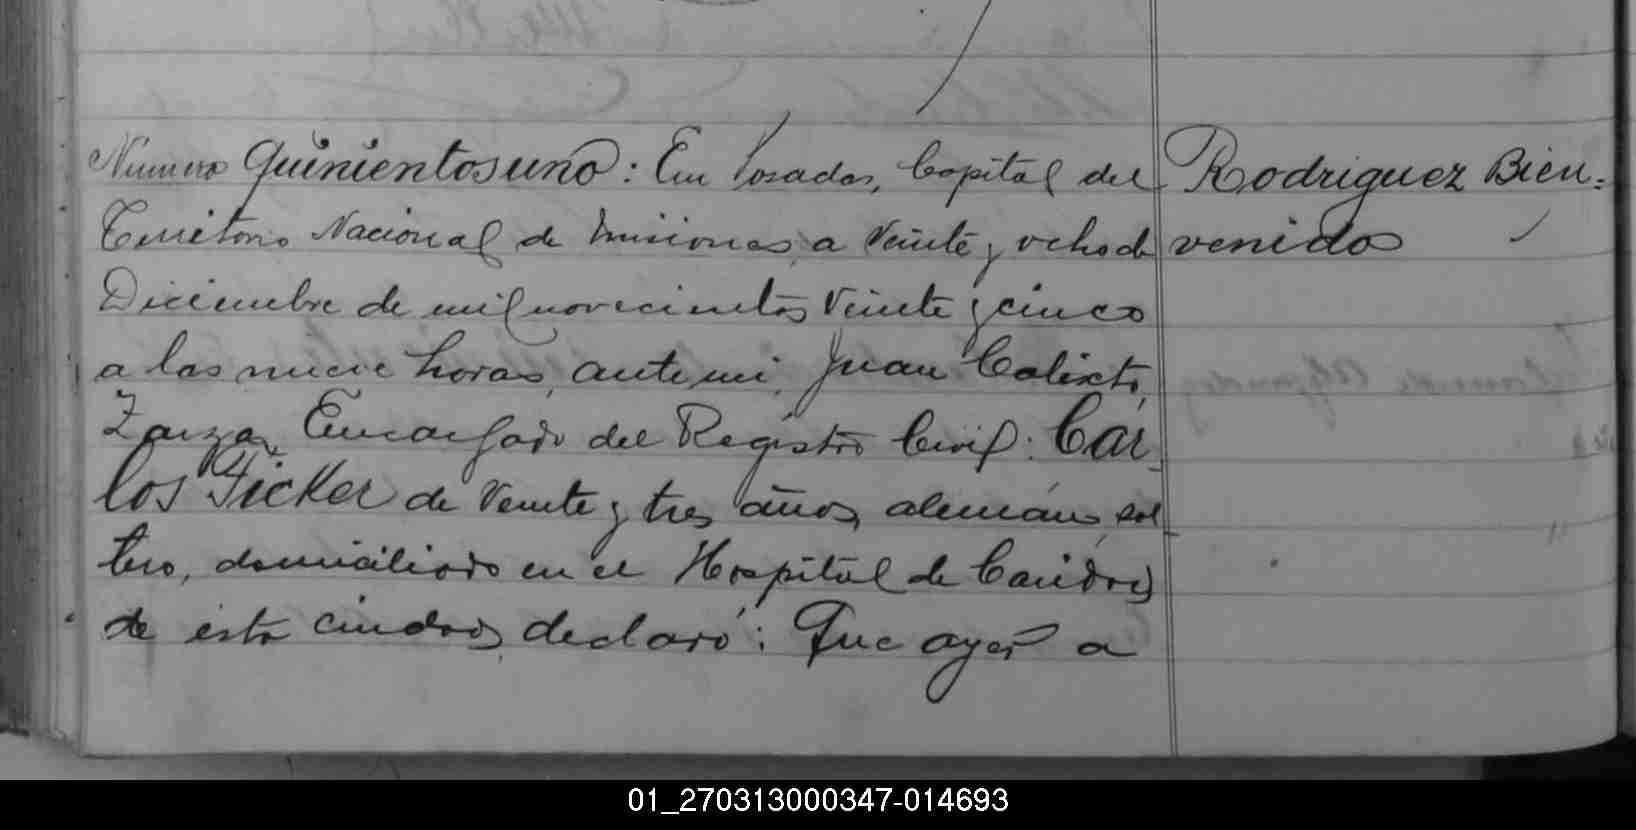 Numero Quinientos uno: En Posadas, Capital del
Territorio Nacional de Misiones, a veinte y ocho de
Diciembre de mil novecientos veinte y cinco
a las nueve horas, ante mi, Juan Calixto
Zarza, Encargado del Registro Civil: Car-
los Ficker de veinte y tres años, alemán, sol
tero, domiciliado en el Hospital de Caridad
de esta ciudad, declaró: Que ayer a
Rodriguez Bien-
venido
01_270313000347-014693